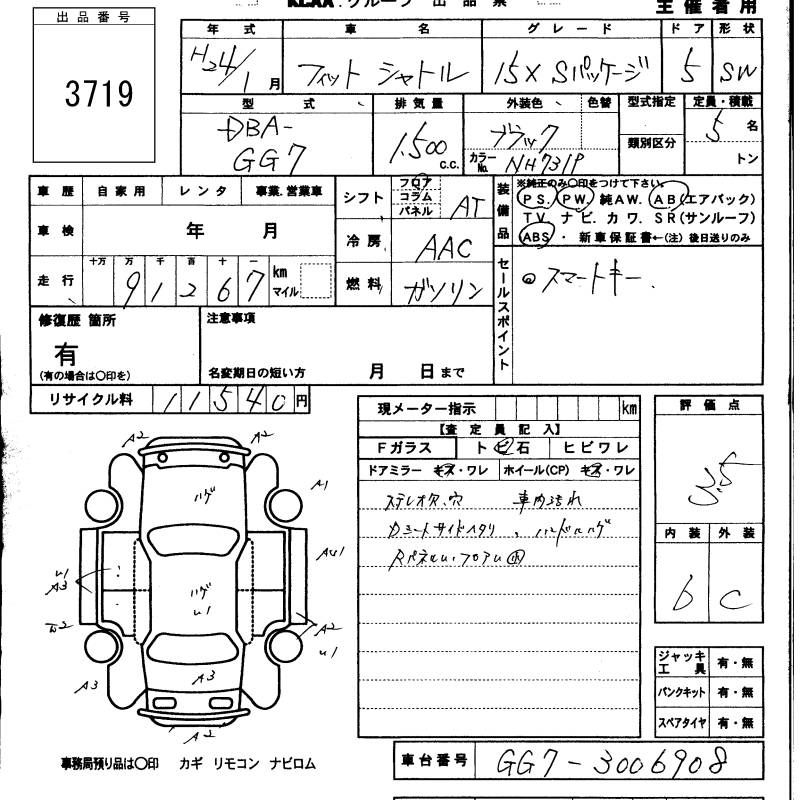 KCAA．グループ 出品票 主催者用
出品番号
3719
年式 車名 グレード ドア 形状
H24/1月 フィット シャトル 15X Sパッケージ 5 SW
型式 排気量 外装色 色替 型式指定 定員・積載
DBA-
GG7 1.500 c.c. ブラック 類別区分 5名
カラーNo. NH731P トン
車歴 自家用 レンタ 事業.営業車
車検 年 月
走行 十万 万 千 百 十 一 km マイル
9 1 2 6 7
シフト フロア コラム パネル AT
冷房 AAC
燃料 ガソリン
装備品
※純正のみ〇印をつけて下さい。
P S. P W. 純A W. A B (エアバック)
T V. ナビ. カワ. S R (サンルーフ)
ABS ・ 新車保証書←(注) 後日送りのみ
セールスポイント
◎スマートキー.
修復歴 箇所
有
(有の場合は〇印を)
注意事項
名変期日の短い方 月 日まで
リサイクル料 11540円
現メーター指示 km
【査定員記入】
Fガラス トビ石 ヒビワレ
ドアミラー キズ・ワレ ホイール(CP) キズ・ワレ
ステレオ穴 車内汚れ
評価点
3.5
内装 外装
b C
A2 A2
ハゲ
A1
AU1
U1
A3
ハゲ
U1
A2
U1
A3
A3
A2
ジャッキ工具 有・無
パンクキット 有・無
スペアタイヤ 有・無
事務局預り品は〇印 カギ リモコン ナビロム
車台番号 GG7-3006908